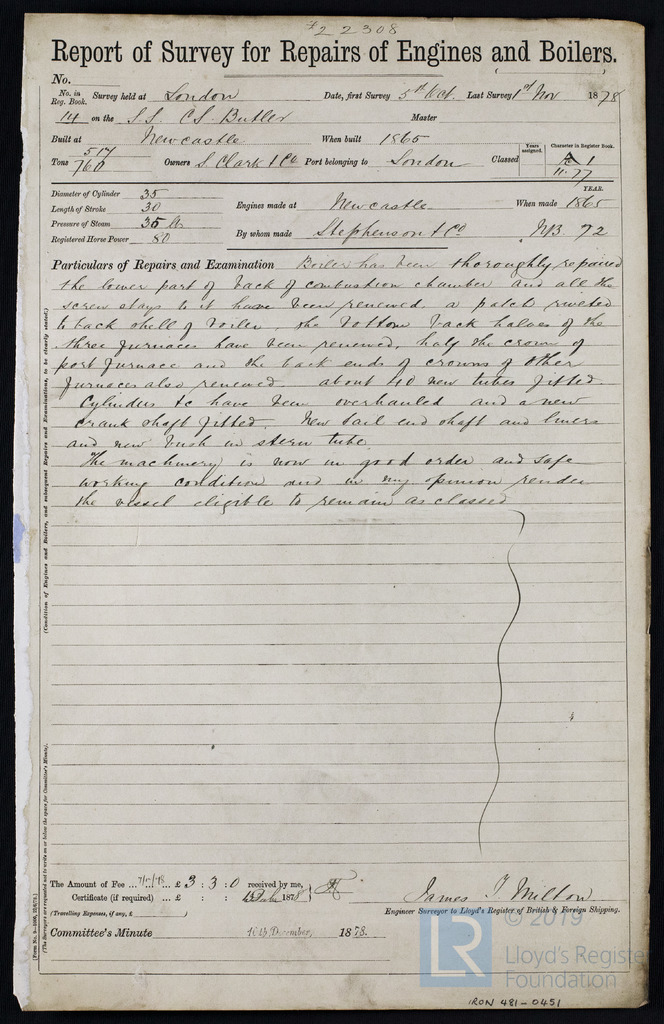 22308
Report of Survey for Repairs of Engines and Boilers.
No.
No. in Reg. Book. Survey held at London Date, first Survey 5th Oct. Last Survey 1st Nov 1878
14 on the S.S. C.S. Butler Master
Built at Newcastle When built 1865
Tons 517 760 Owners S. Clark & Co Port belonging to London Classed Years assigned. Character in Register Book. A 1 11.77
Diameter of Cylinder 35
Length of Stroke 30
Pressure of Steam 35 lb
Registered Horse Power 80
Engines made at Newcastle When made YEAR. 1865
By whom made Stephenson & Co NB. 72
Particulars of Repairs and Examination Boiler has been thoroughly repaired
the lower part of back of combustion chamber and all the
screw stays to it have been renewed, a patch riveted
to back shell of boiler, the bottom back halves of the
three furnaces have been renewed, half the crown of
port furnace and the back ends of crowns of other
furnaces also renewed. about 40 new tubes fitted.
Cylinders &c have been overhauled and a new
crank shaft fitted. New tail end shaft and liners
and new bush in stern tube
The machinery is now in good order and safe
working condition and in my opinion render
the vessel eligible to remain as classed
(Condition of Engines and Boilers, and subsequent Repairs and Examinations, to be clearly stated.)
(The Surveyors are requested not to write on or below the space for Committee's Minute).
The Amount of Fee ... £ 3 : 3 : 0 received by me,
Certificate (if required) ... £ : : 1878
(Travelling Expenses, if any, £ )
James T Milton
Engineer Surveyor to Lloyd's Register of British & Foreign Shipping.
Committee's Minute 10th December, 1878.
© 2019
LR
Lloyd's Register
Foundation
IRON 481-0451